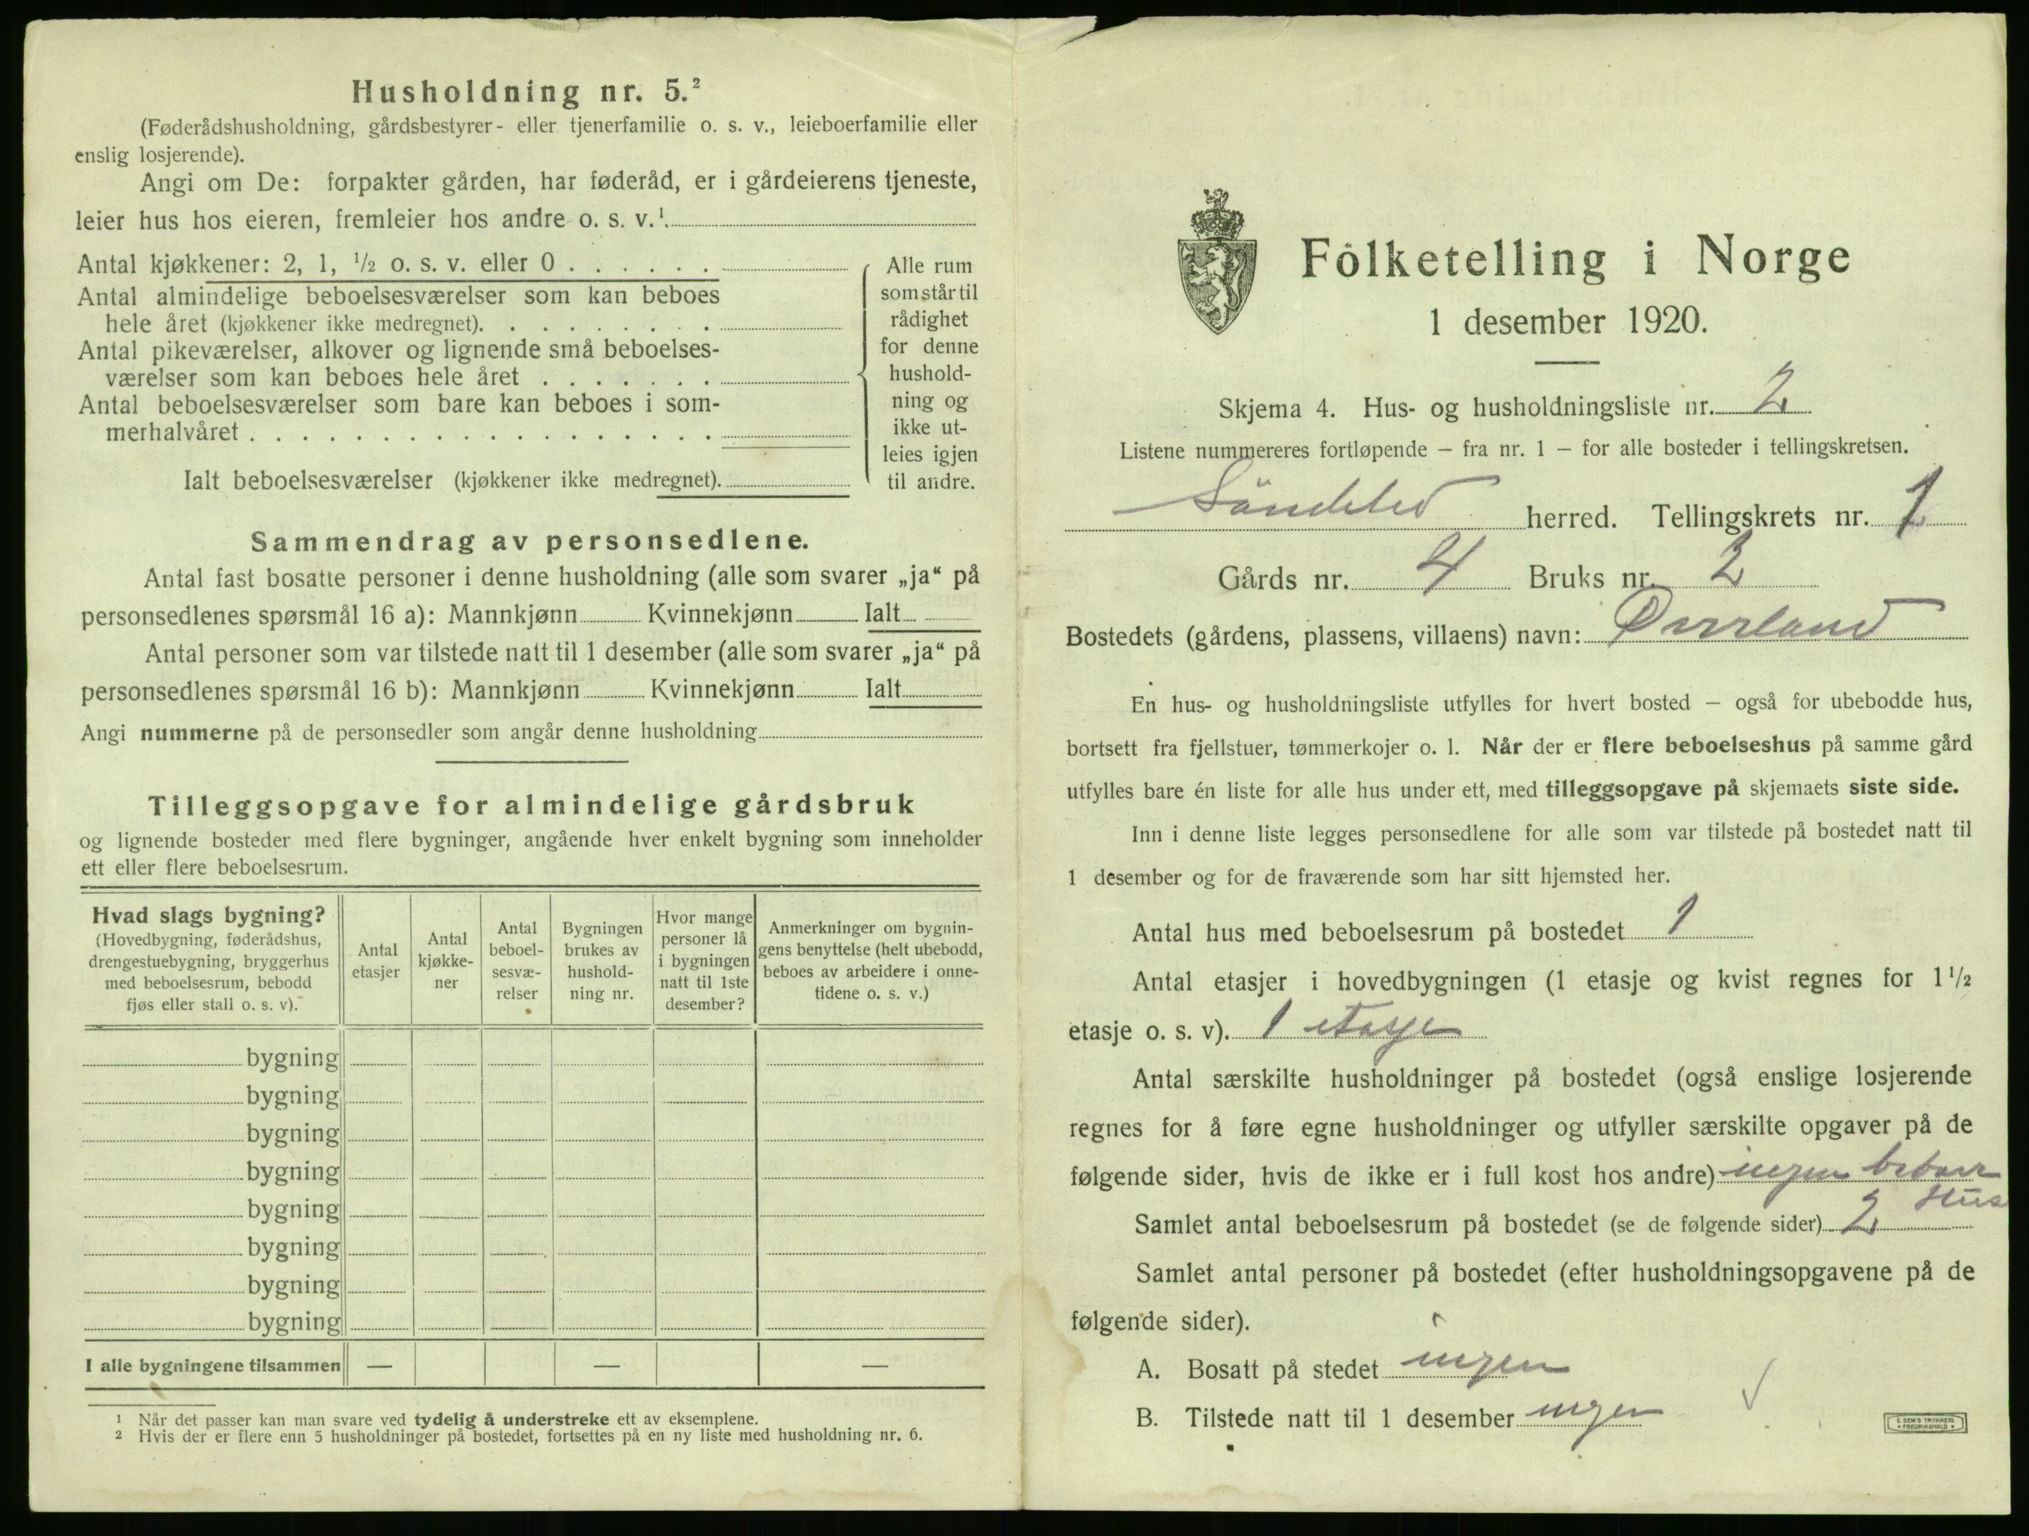 Husholdning nr. 5.²
(Føderådshusholdning, gårdsbestyrer- eller tjenerfamilie o. s. v., leieboerfamilie eller
enslig losjerende).
Angi om De: forpakter gården, har føderåd, er i gårdeierens tjeneste,
leier hus hos eieren, fremleier hos andre o. s. v.¹
Antal kjøkkener: 2, 1, ½ o. s. v. eller 0 . . . . . .
Antal almindelige beboelsesværelser som kan beboes
hele året (kjøkkener ikke medregnet). . . . . . . . .
Antal pikeværelser, alkover og lignende små beboelses-
værelser som kan beboes hele året . . . . . . .
Antal beboelsesværelser som bare kan beboes i som-
merhalvåret . . . . . . . . . . . . . . . . . .
Ialt beboelsesværelser (kjøkkener ikke medregnet).
Alle rum
som står til
rådighet
for denne
hushold-
ning og
ikke ut-
leies igjen
til andre.
Sammendrag av personsedlene.
Antal fast bosatte personer i denne husholdning (alle som svarer „ja“ på
personsedlenes spørsmål 16 a): Mannkjønn Kvinnekjønn Ialt
Antal personer som var tilstede natt til 1 desember (alle som svarer „ja“ på
personsedlenes spørsmål 16 b): Mannkjønn Kvinnekjønn Ialt
Angi nummerne på de personsedler som angår denne husholdning
Tilleggsopgave for almindelige gårdsbruk
og lignende bosteder med flere bygninger, angående hver enkelt bygning som inneholder
ett eller flere beboelsesrum.
Hvad slags bygning?
(Hovedbygning, føderådshus,
drengestuebygning, bryggerhus
med beboelsesrum, bebodd
fjøs eller stall o. s. v).
Antal
etasjer
Antal
kjøkke-
ner
Antal
beboel-
sesvæ-
relser
Bygningen
brukes av
hushold-
ning nr.
Hvor mange
personer lå
i bygningen
natt til 1ste
desember?
Anmerkninger om bygnin-
gens benyttelse (helt ubebodd,
beboes av arbeidere i onne-
tidene o. s. v.)
bygning
bygning
bygning
bygning
bygning
bygning
bygning
bygning
I alle bygningene tilsammen — — —
¹ Når det passer kan man svare ved tydelig å understreke ett av eksemplene.
² Hvis der er flere enn 5 husholdninger på bostedet, fortsettes på en ny liste med husholdning nr. 6.
Folketelling i Norge
1 desember 1920.
Skjema 4. Hus- og husholdningsliste nr. 2
Listene nummereres fortløpende – fra nr. 1 – for alle bosteder i tellingskretsen.
Söndeled herred. Tellingskrets nr. 1
Gårds nr. 4 Bruks nr. 2
Bostedets (gårdens, plassens, villaens) navn: Øverland
En hus- og husholdningsliste utfylles for hvert bosted – også for ubebodde hus,
bortsett fra fjellstuer, tømmerkojer o. l. Når der er flere beboelseshus på samme gård
utfylles bare én liste for alle hus under ett, med tilleggsopgave på skjemaets siste side.
Inn i denne liste legges personsedlene for alle som var tilstede på bostedet natt til
1 desember og for de fraværende som har sitt hjemsted her.
Antal hus med beboelsesrum på bostedet 1
Antal etasjer i hovedbygningen (1 etasje og kvist regnes for 1½
etasje o. s. v). 1 etasje
Antal særskilte husholdninger på bostedet (også enslige losjerende
regnes for å føre egne husholdninger og utfyller særskilte opgaver på de
følgende sider, hvis de ikke er i full kost hos andre) ingen beboer
Huse
Samlet antal beboelsesrum på bostedet (se de følgende sider) 2
Samlet antal personer på bostedet (efter husholdningsopgavene på de
følgende sider).
A. Bosatt på stedet ingen
B. Tilstede natt til 1 desember ingen
E. SEM'S TRYKKERI
FREDRIKSHALD